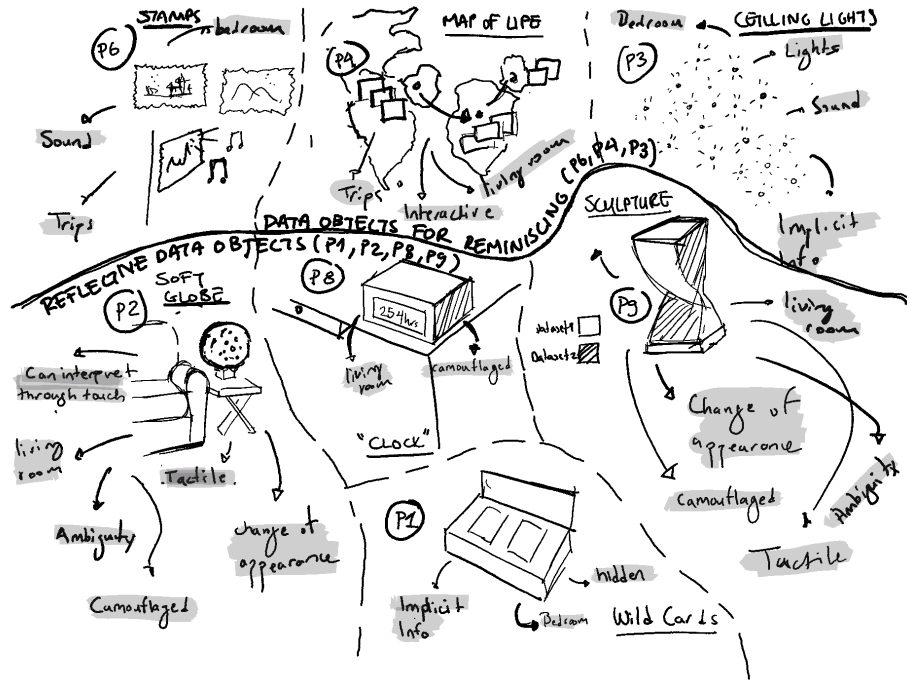 STAMPS
P6
bedroom
Sound
Trips
MAP OF LIFE
P4
Trips
Interactive
living room
Bedroom
CEILLING LIGHTS
P3
Lights
Sound
Implicit
Info
DATA OBJECTS FOR REMINISCING (P6, P4, P3)
REFLECTIVE DATA OBJECTS (P1, P2, P8, P9)
P2
SOFT
GLOBE
Can interpret
through touch
living
room
Tactile
Ambiguity
Camouflaged
Change of
appearance
P8
254hrs
living
room
camouflaged
"CLOCK"
SCULPTURE
P9
Dataset1
Dataset2
living
room
Change of
appearance
Camouflaged
Ambiguity
Tactile
P1
Implicit
Info
hidden
Bedroom
Wild Cards